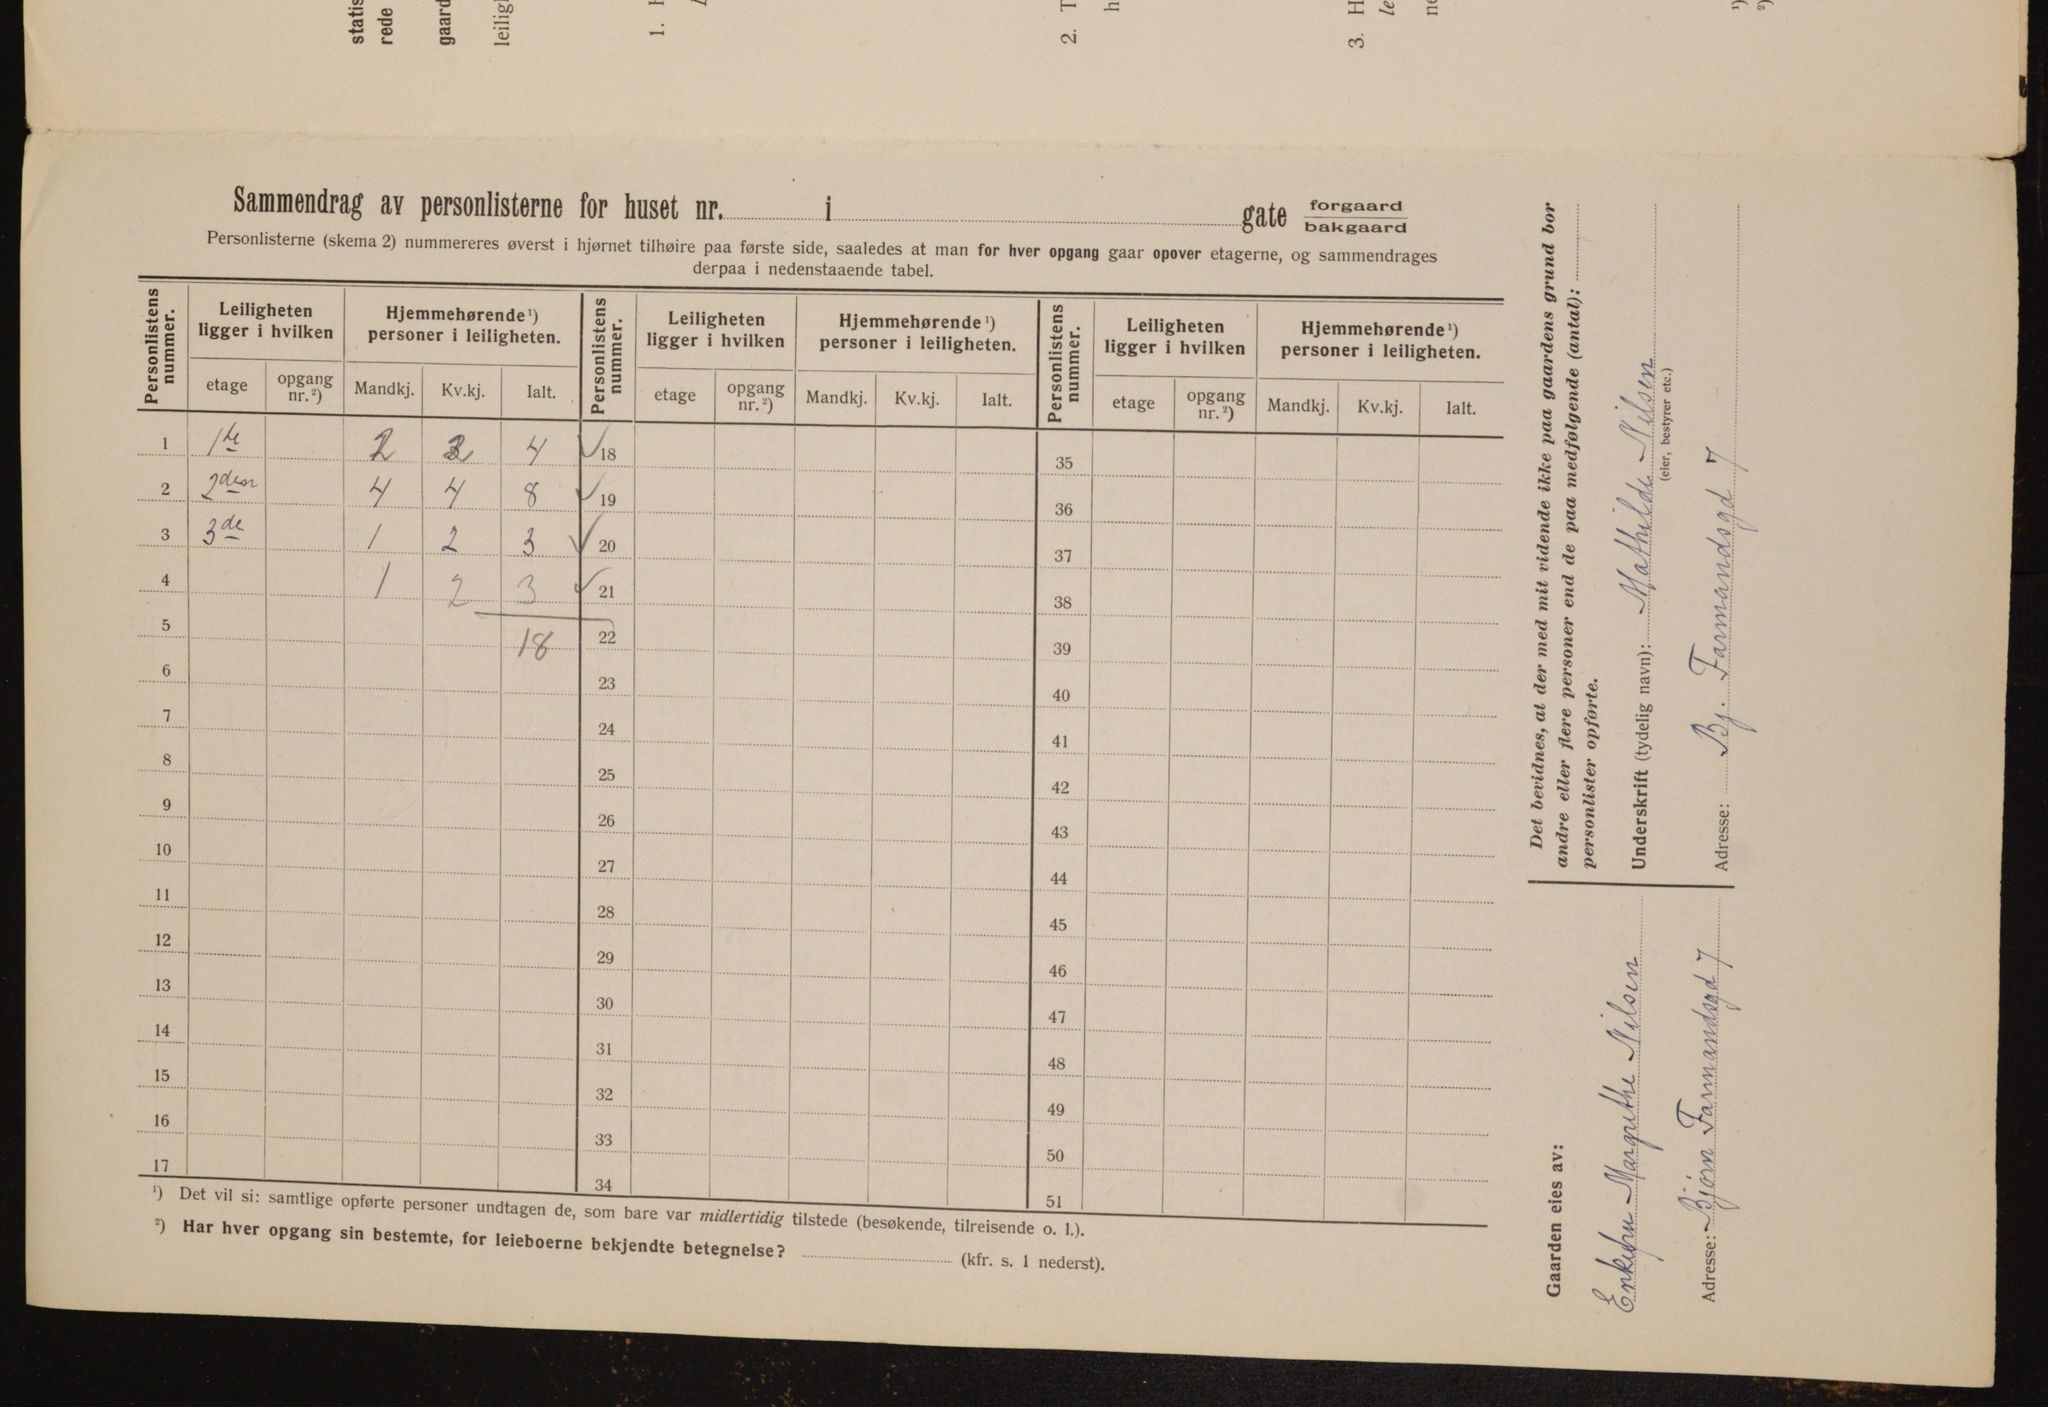 statis
rede
gaard
leilig
1. H
2. T
h
3. H
le
ne
¹)
²)
Sammendrag av personlisterne for huset nr. i gate forgaard
bakgaard
Personlisterne (skema 2) nummereres øverst i hjørnet tilhøire paa første side, saaledes at man for hver opgang gaar opover etagerne, og sammendrages
derpaa i nedenstaaende tabel.
Personlistens nummer. Leiligheten ligger i hvilken Hjemmehørende¹) personer i leiligheten. Personlistens nummer. Leiligheten ligger i hvilken Hjemmehørende¹) personer i leiligheten. Personlistens nummer. Leiligheten ligger i hvilken Hjemmehørende¹) personer i leiligheten.
etage opgang nr.²) Mandkj. Kv.kj. Ialt. etage opgang nr.²) Mandkj. Kv.kj. Ialt. etage opgang nr.²) Mandkj. Kv.kj. Ialt.
1 1ste 2 2 4 ✓ 18 35
2 2den 4 4 8 ✓ 19 36
3 3de 1 2 3 ✓ 20 37
4 1 2 3 ✓ 21 38
5 18 22 39
6 23 40
7 24 41
8 25 42
9 26 43
10 27 44
11 28 45
12 29 46
13 30 47
14 31 48
15 32 49
16 33 50
17 34 51
¹) Det vil si: samtlige opførte personer undtagen de, som bare var midlertidig tilstede (besøkende, tilreisende o. l.).
²) Har hver opgang sin bestemte, for leieboerne bekjendte betegnelse? (kfr. s. 1 nederst).
Det bevidnes, at der med mit vidende ikke paa gaardens grund bor
andre eller flere personer end de paa medfølgende (antal):
personlister opførte.
Underskrift (tydelig navn): Mathilde Nilsen
(eier, bestyrer etc.)
Adresse: Bj. Farmandsgd 7
Gaarden eies av:
Enkefru Margrethe Nilsen
Adresse: Bjørn Farmandsgd 7